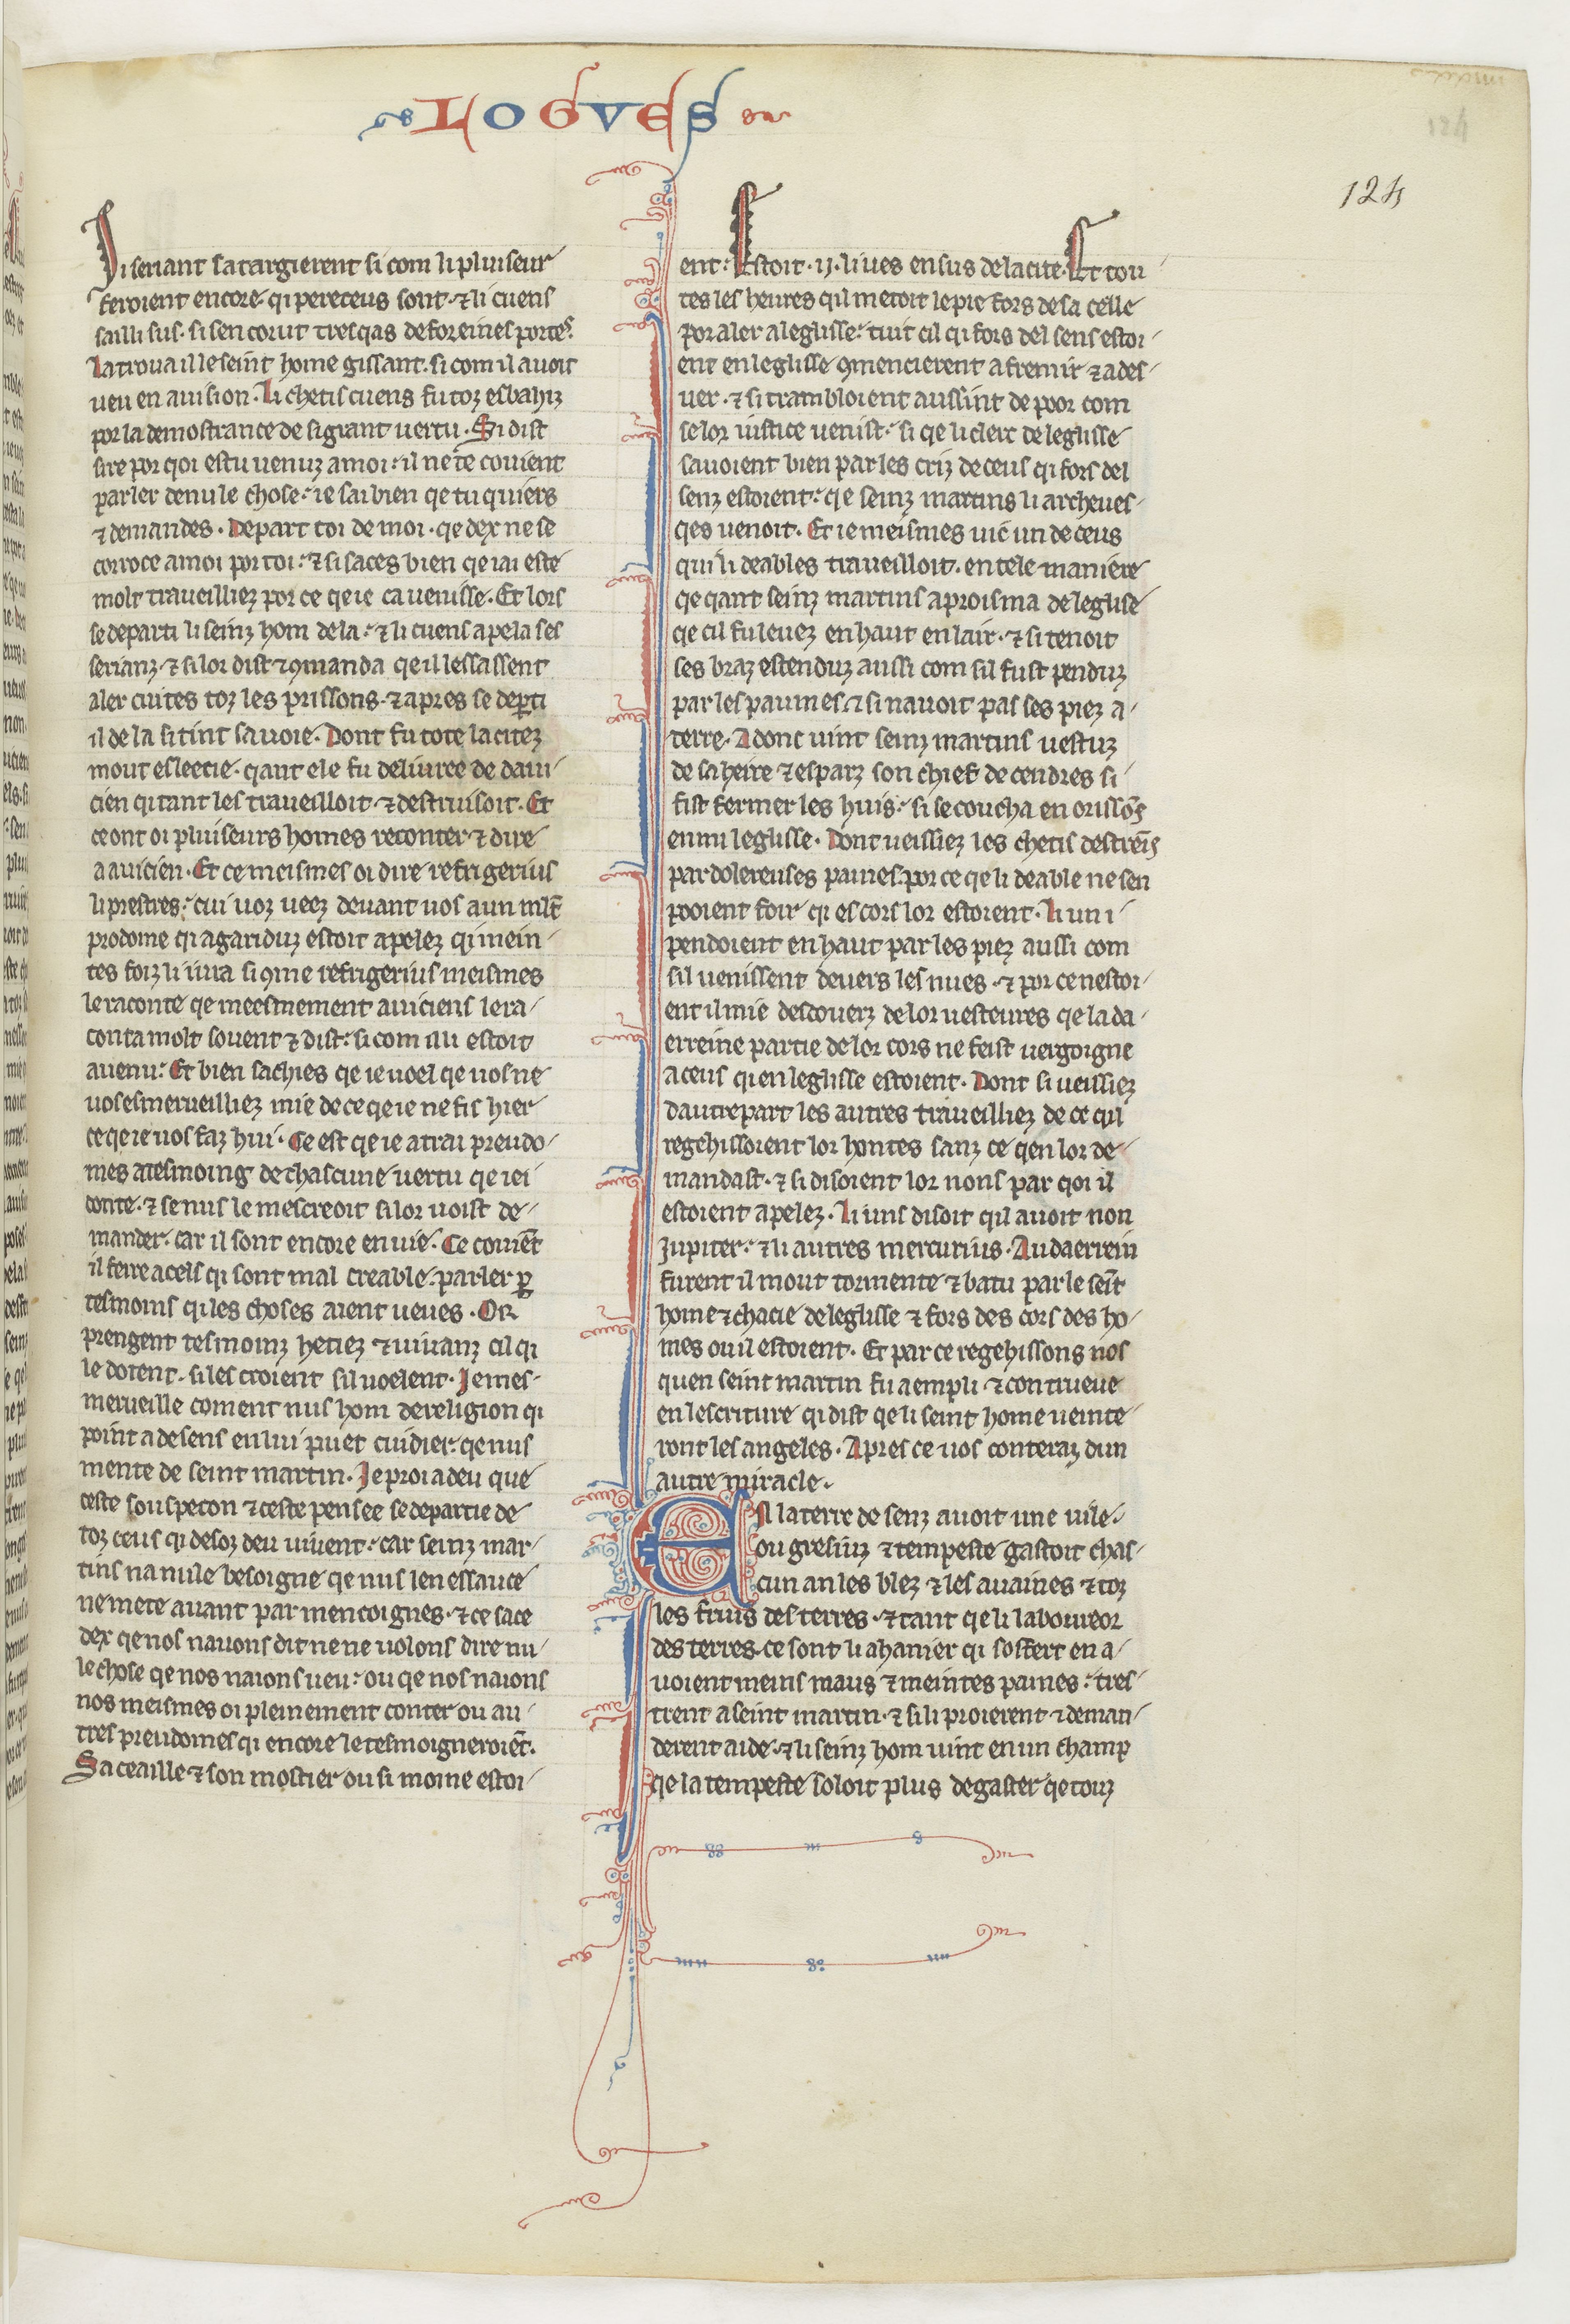 LOGVES
124
Li seriant satargierent si com li pluiseur
feroient encore qi pereceus sont ⁊ li cuens
sailli sus. si sen corut tresqas deforeines portes.
La trova il le seint home gissant. si com il avoit
veu en avision. Li chetis cuens fu toz esbahiz
por la demostrance de si grant vertu. Si dist
sire por qoi es tu venuz a moi. il ne te covient
parler de nule chose. ie sai bien qe tu quiers
⁊ demandes. Depart toi de moi. qe dex ne se
corroce a moi por toi. ⁊ si saces bien qe iai este
molt traveilliez por ce qe ie ca venisse. Et lors
se departi li seinz hom de la. ⁊ li cuens apela ses
serianz ⁊ si lor dist ⁊ 9manda qe il lessassent
aler cuites toz les prissons. ⁊ apres se deꝑti
il de la si tint sa voie. Dont fu tote la citez
mout esleecie. qant ele fu delivree de davi-
cien qi tant les traveilloit ⁊ destruisoit. Et
ce ont oi pluiseurs homes reconter ⁊ dire
a avicien. Et ce meismes oi dire refrigerius
li prestres. cui voz veez devant vos a un mlt
prodome qi agariduz estoit apelez qi mein-
tes foiz li iura si 9me refrigerius meismes
le raconte qe meesmement aviciens le ra-
conta molt sovent ⁊ dist. si com illi estoit
avenu. Et bien sachies qe ie voel qe vos ne
vos esmerveilliez mie de ce qe ie ne fis hier
ce qe ie vos faz hui. Ce est qe ie atrai preudo-
mes a tesmoing de chascune vertu qe iei
conte. ⁊ se nus le mescreoit si lor voist de-
mander. car il sont encore en vie. Ce covient
il ferre a cels qi sont mal creable. parler ꝑ
tesmoins qi les choses aient veues. OR
prengent tesmoinz hetiez ⁊ vivanz cil qi
le dotent. si les croient sil voelent. Je mes-
merveille coment nus hom de religion qi
point a de sens en lui puet cuidier. qe nus
mente de seint martin. Je proi a deu que
ceste souspecon ⁊ ceste pensee se departie de
toz ceus qi desoz deu vivent. car seinz mar-
tins na nule besoigne qe nus len essauce
ne mete avant par mencoignes. ⁊ ce sace
dex qe nos navons dit ne ne volons dire nu-
le chose qe nos naions veu. ou qe nos naions
nos meismes oi pleinement conter ou au-
tres preudomes qi encore le tesmoigneroiēt.
Sa ceaille ⁊ son mostier ou si moine estoi-
ent. Estoit .ij. liues en sus de la cite. Et tou
tes les heures qil metoit le pie fors de sa celle
por aler a leglisse. tuit cil qi fors del sens estoi-
ent en leglisse 9mencierent a fremir ⁊ a des-
ver. ⁊ si trambloient aussint de poor com
se lor iustice venist. si qe li clerc de leglisse
savoient bien par les criz de ceus qi fors del
senz estoient. qe seinz martins li archeves-
qes venoit. Et ie meismes vic un de ceus
qui li deables traveilloit. en tele maniere
qe qant seinz martins aproisma de leglise
qe cil fu levez en haut en lair. ⁊ si tenoit
ses braz estenduz aussi com sil fust penduz
par les paumes ⁊ si navoit pas ses piez a-
terre. Adonc vint seinz martins vestuz
de sa heire ⁊ esparz son chief de cendres si
fist fermer les huis. si se coucha en orissons
en mi leglisse. Dont veissiez les chetis destreis
par dolereuses paines. por ce qe li deable ne sen
pooient foir qi es cors lor estoient. Li un i
pendoient en haut par les piez aussi com
sil venissent devers les nues. ⁊ por ce nestoi-
ent il mie descouerz de lor vesteures qe la da-
erreine partie de lor cors ne feist vergoigne
a ceus qi en leglisse estoient. Dont si veissiez
dautre part les autres traveilliez de ce qil
regehissoient lor hontes sanz ce qen lor de-
mandast. ⁊ si disoient lor nons par qoi il
estoient apelez. Li uns disoit qil avoit non
Jupiter. ⁊ li autres mercurius. Au daerrein
furent il mout tormente ⁊ batu par le seīt
home ⁊ chacie de leglisse ⁊ fors des cors des ho-
mes ou il estoient. Et par ce regehissons nos
quen seint martin fu aempli ⁊ contrueue
en lescriture qi dist qe li seint home veinte
ront les angeles. Apres ce vos conteraz dun
autre miracle.
En la terre de senz avoit une vile.
ou gresliuz ⁊ tempeste gastoit chas-
cun an les blez ⁊ les avaines ⁊ toz
les fruis des terres. ⁊ tant qe li laboureor
des terres. ce sont li ahanier qi soffert en a-
voient meins maus ⁊ meintes paines. tres-
trent a seint martin. ⁊ si li proierent ⁊ deman-
derent aide. ⁊ li seinz hom vint en un champ
qe la tempeste soloit plus degaster qe touz